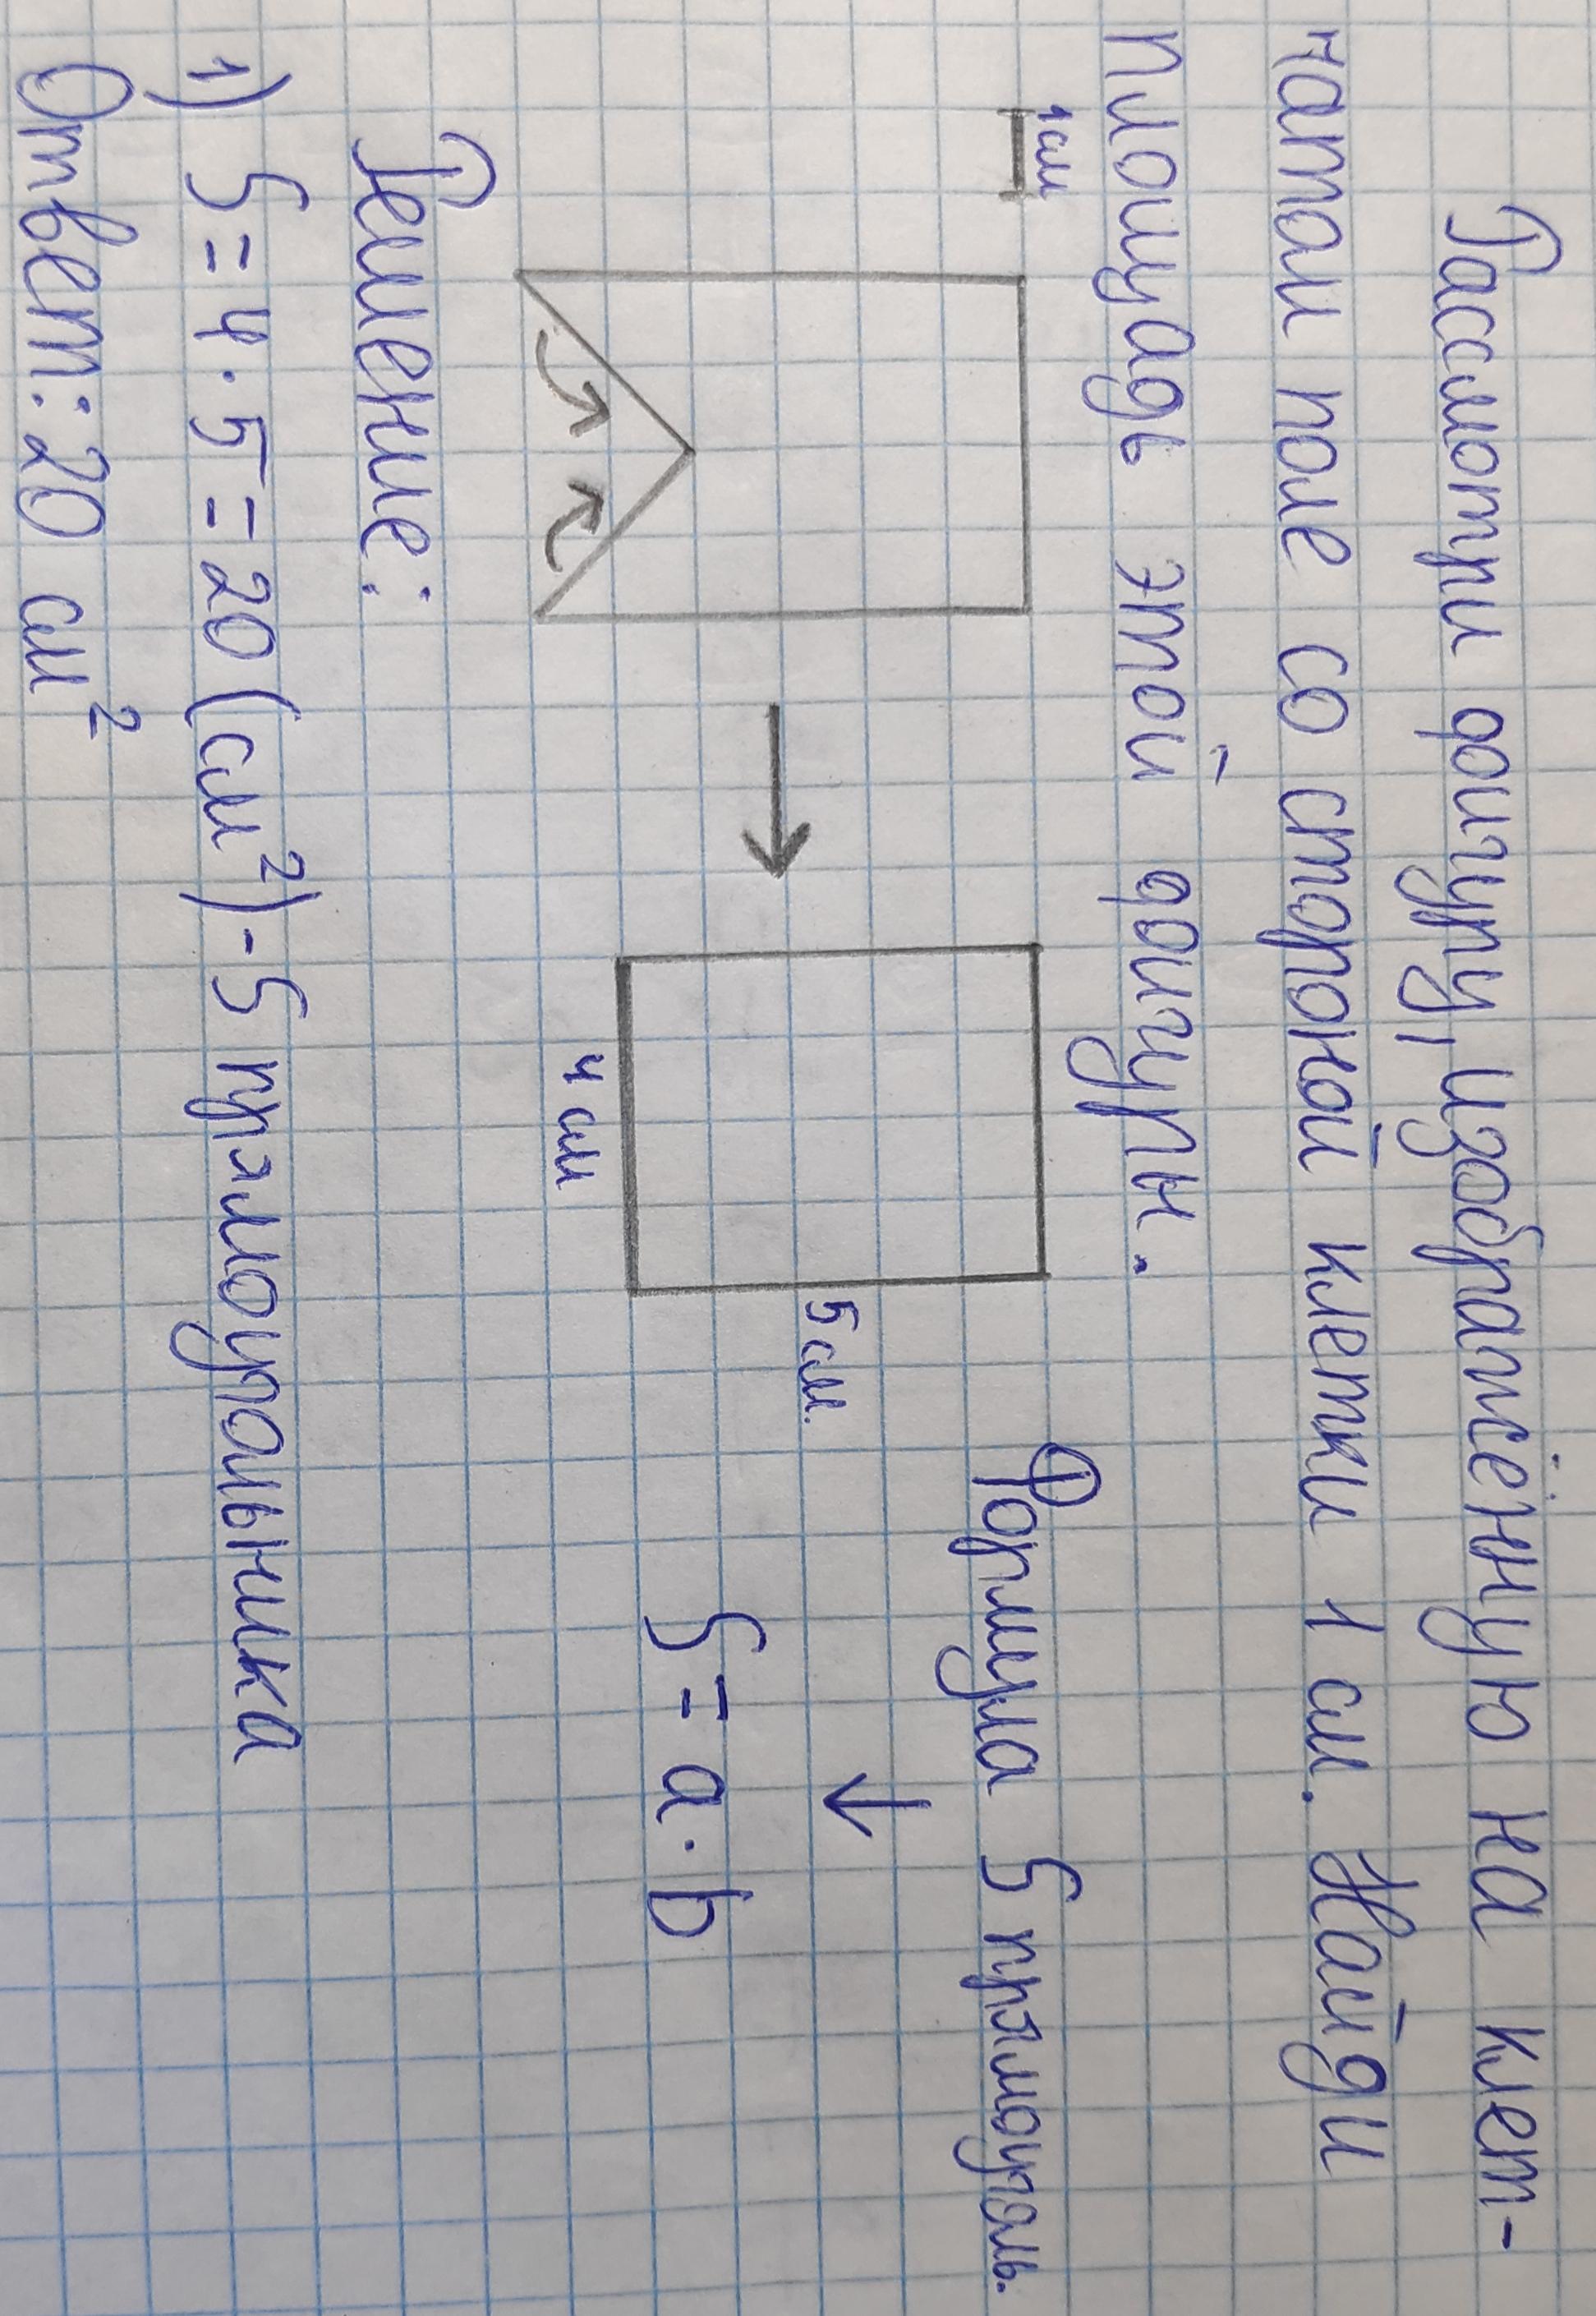 Рассмотри фигуру, изображённую на клет-
чатом поле со стороной клетки 1 см. Найди
площадь этой фигуры.
1 см
Формула S прямоуголь.
↓
5 см.
S = a · b
4 см
Решение:
1) S = 4 · 5 = 20 (см²) - S прямоугольника
Ответ: 20 см²